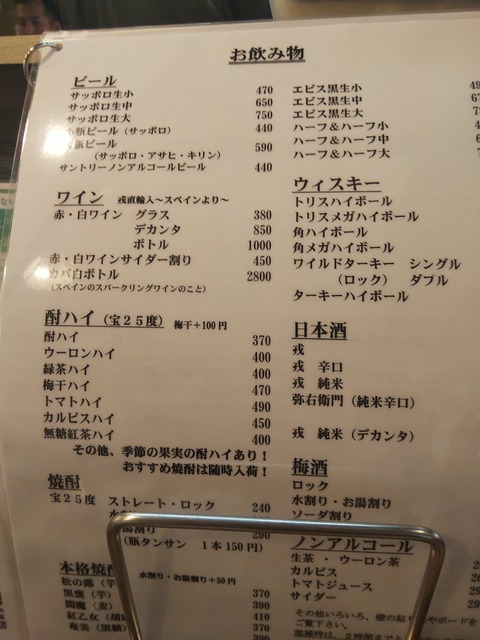 お飲み物
ビール
サッポロ生小 470
サッポロ生中 650
サッポロ生大 750
小瓶ビール（サッポロ） 440
瓶ビール 590
（サッポロ・アサヒ・キリン）
サントリーノンアルコールビール 440
ワイン 戎直輸入～スペインより～
赤・白ワイン グラス 380
デカンタ 850
ボトル 1000
赤・白ワインサイダー割り 450
カバ白ボトル 2800
（スペインのスパークリングワインのこと）
酎ハイ（宝２５度） 梅干＋100円
酎ハイ 370
ウーロンハイ 400
緑茶ハイ 400
梅干ハイ 470
トマトハイ 490
カルピスハイ 450
無糖紅茶ハイ 400
その他、季節の果実の酎ハイあり！
おすすめ焼酎は随時入荷！
焼酎
宝２５度 ストレート・ロック 240
割り 290
（瓶タンサン １本150円）
本格焼酎 水割り・お湯割り＋50円
松の露（芋）
黒甕（芋） 370
閻魔（麦） 390
紅乙女（胡麻 410
奄美（黒糖） 370
390
エビス黒生小
エビス黒生中
エビス黒生大
ハーフ＆ハーフ小
ハーフ＆ハーフ中
ハーフ＆ハーフ大
ウィスキー
トリスハイボール
トリスメガハイボール
角ハイボール
角メガハイボール
ワイルドターキー シングル
（ロック） ダブル
ターキーハイボール
日本酒
戎
戎 辛口
戎 純米
弥右衛門（純米辛口）
戎 純米（デカンタ）
梅酒
ロック
水割り・お湯割り
ソーダ割り
ノンアルコール
生茶・ウーロン茶
カルピス
トマトジュース
サイダー
その他いろいろ、壁の貼り
やボードを
ご覧下さい。